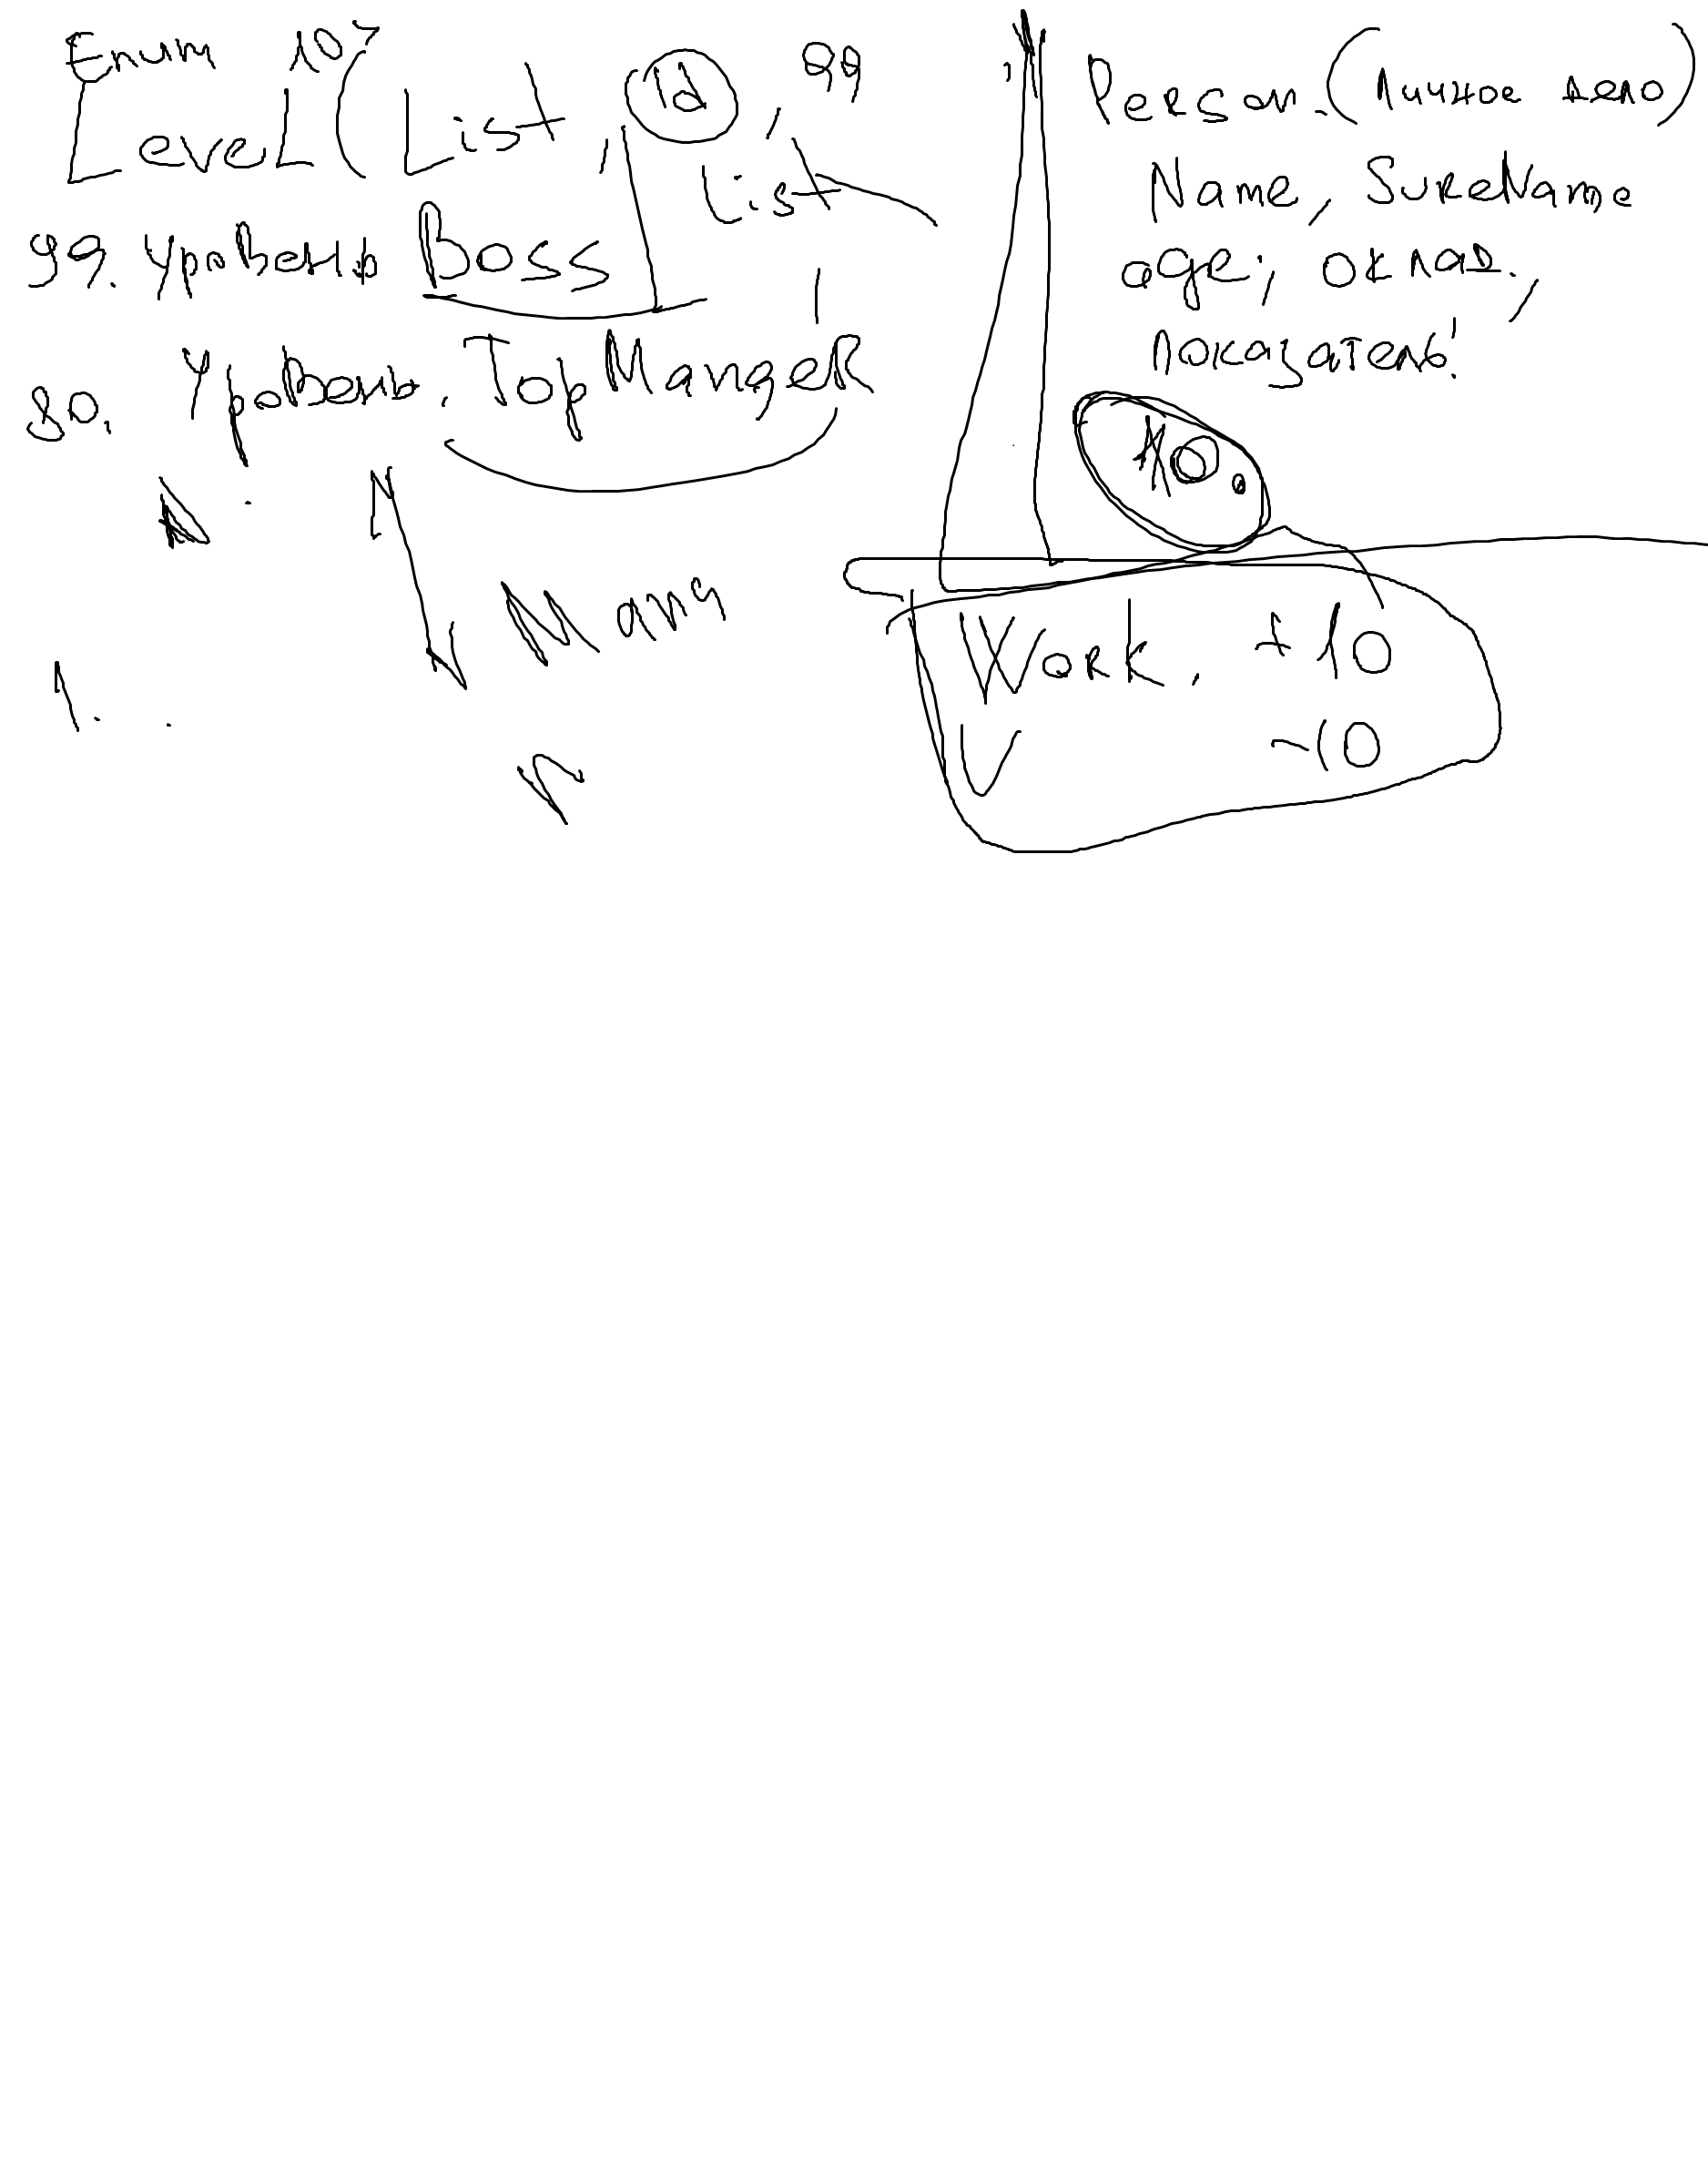 Enum
Level(List, id, 99
List
99. уровень Boss
80. Уровень. TopMangeR
N
Many
1.
Person. (Личное дело)
Name, SureName
age, оклад.,
показатель!
Work. +10
-10